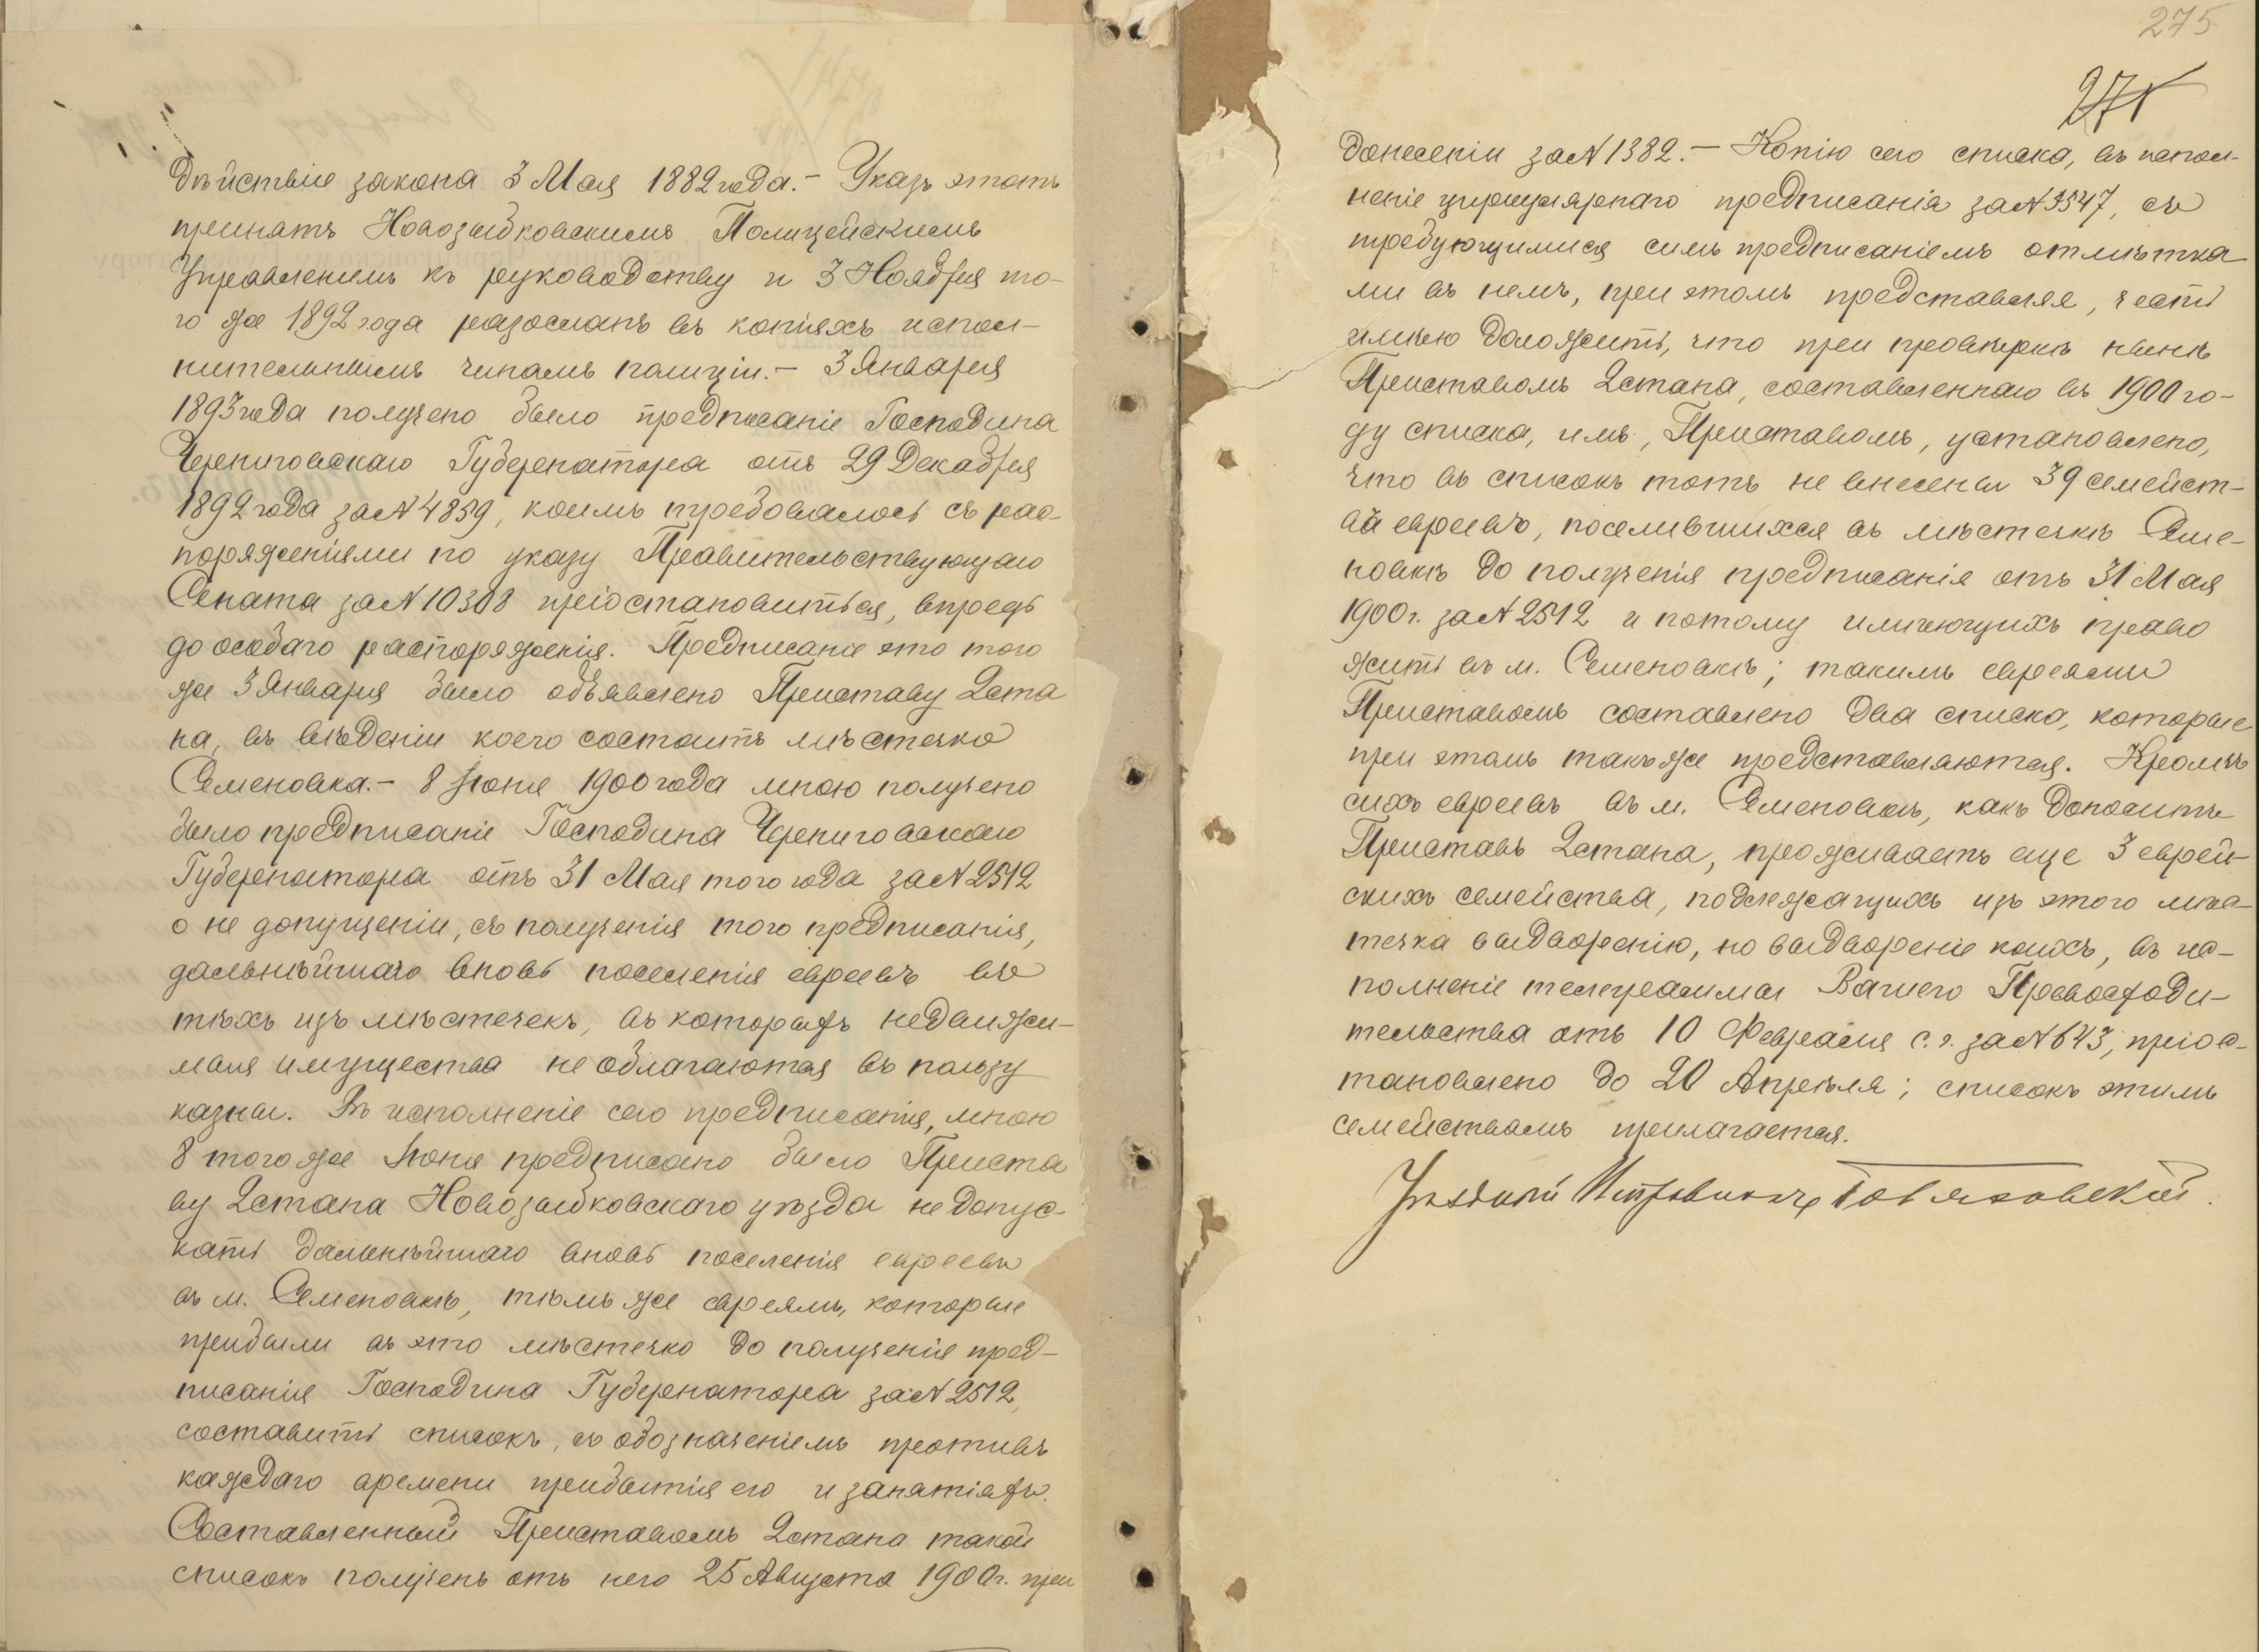 дѣйствіе закона 3 Мая 1882 года.– Указъ этотъ
принятъ Новозыбковскимъ Полицейскимъ
Управленіемъ къ руководству и 3 Ноября то-
го же 1892 года разосланъ въ копіяхъ испол-
нительнымъ чинамъ полиціи.– 3 Января
1893 года получено было предписаніе Господина
Черниговскаго Губернатора отъ 29 Декабря
1892 года за № 4839, коимъ требовалось съ рас-
поряженіями по указу Правительствующаго
Сената за № 10308 пріостановиться, впредь
до особаго распоряженія. Предписаніе это того
же 3 Января было объявлено Приставу 2 ста
на, въ вѣденіи коего состоитъ мѣстечко
Семеновка.– 8 Іюня 1900 года мною получено
было предписаніе Господина Черниговскаго
Губернатора отъ 31 Мая того года за № 2512
о не допущеніи, съ полученія того предписанія,
дальнѣйшаго вновь поселенія евреевъ въ
тѣхъ изъ мѣстечекъ, въ которыхъ недвижи-
мыя имущества не облагаются въ пользу
казны. Въ исполненіе сего предписанія, мною
8 того же Іюня предписано было Приста
ву 2 стана Новозыбковскаго уѣзда не допус-
кать дальнѣйшаго вновь поселенія евреевъ
въ м. Семеновкѣ, тѣмъ же евреямъ, которые
прибыли въ это мѣстечко до полученія пред-
писанія Господина Губернатора за № 2512,
составить списокъ, съ обозначеніемъ противъ
каждаго времени прибытія его и занятіяхъ.
Составленный Приставомъ 2 стана такой
списокъ полученъ отъ него 25 Августа 1900 г. при
275
275
донесеніи за № 1382.– Копію сего списка, въ испол-
неніе циркулярнаго предписанія за № 3547, съ
требующимися симъ предписаніемъ отмѣтка
ми въ немъ, при этомъ представляя, честь
имѣю доложить, что при провѣркѣ нынѣ
Приставомъ 2 стана, составленнаго въ 1900 го-
ду списка, имъ, Приставомъ, установлено,
что въ списокъ тотъ не внесены 39 семейст-
ва евреевъ, поселившихся въ мѣстечкѣ Семе-
новкѣ до полученія предписанія отъ 31 Мая
1900 г. за № 2512 и потому имѣющихъ право
жить въ м. Семеновкѣ; такимъ евреямъ
Приставомъ составлено два списка, которые
при этомъ также представляются. Кромѣ
сихъ евреевъ въ м. Семеновкѣ, какъ доноситъ
Приставъ 2 стана, проживаетъ еще 3 еврей-
скихъ семейства, подлежащихъ изъ этого мѣс-
течка выдворенію, но выдвореніе коихъ, въ ис-
полненіе телеграммы Вашего Превосходи-
тельства отъ 10 Февраля с. г. за № 643, пріос-
тановлено до 20 Апрѣля; списокъ этимъ
семействамъ прилагается.
Уѣздный Исправникъ